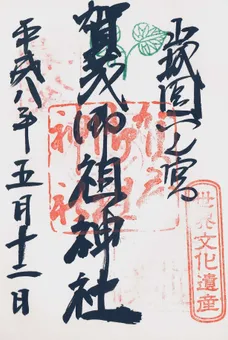 山城国一之宮
賀茂御祖神社
平成八年五月十二日
世界文化遺産